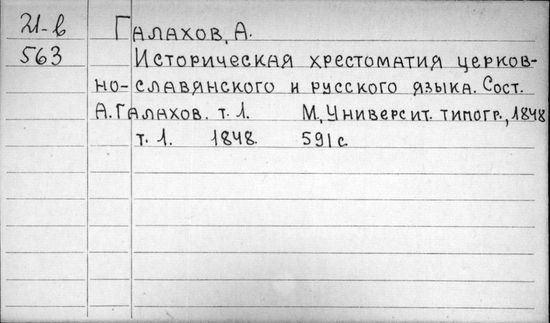 21-в Галахов, А.
563 Историческая хрестоматия церков-
но-славянского и русского языка. Сост.
А. Галахов. т. 1. М, Университ. типогр., 1848
т. 1. 1848. 591 с.